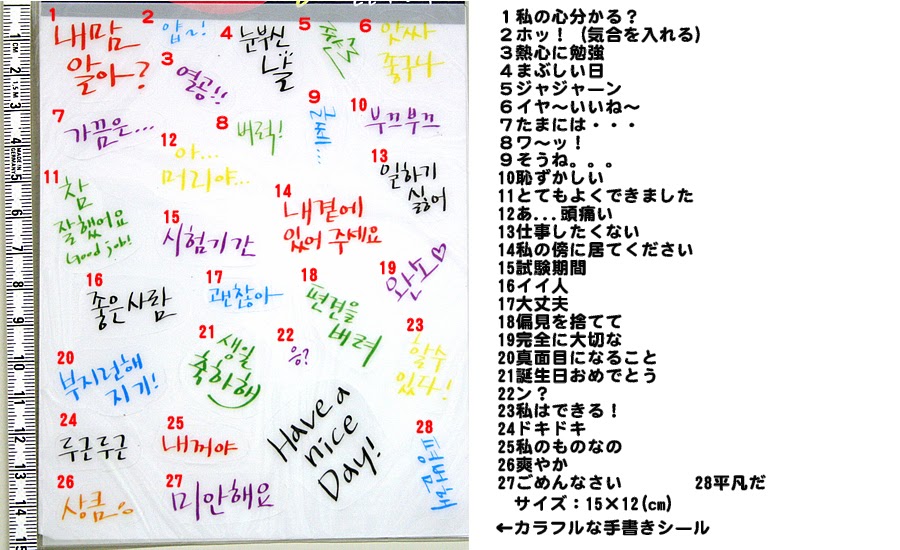 1
내맘
알아?
2
얍~!
3
열공!!
4
눈부신
날
5
6
앗싸
좋구나
7
가끔은...
8
버럭!
9
글쎄...
10
부끄부끄
11
참
잘했어요
Good job!
12
아...
머리야...
13
일하기
싫어
14
내곁에
있어 주세요
15
시험기간
16
좋은사람
17
괜찮아
18
편견을
버려
19
완소♡
20
부지런해
지기!
21
생일
축하해
22
응?
23
할수
있다!
24
두근두근
25
내꺼야
26
상큼
27
미안해요
28
평범해
Have a
nice
Day!
1私の心分かる?
2ホッ!(気合を入れる)
3熱心に勉強
4まぶしい日
5ジャジャーン
6イヤ~いいね~
7たまには・・・
8ワ~ッ!
9そうね。。。
10恥ずかしい
11とてもよくできました
12あ...頭痛い
13仕事したくない
14私の傍に居てください
15試験期間
16イイ人
17大丈夫
18偏見を捨てて
19完全に大切な
20真面目になること
21誕生日おめでとう
22ン?
23私はできる!
24ドキドキ
25私のものなの
26爽やか
27ごめんなさい 28平凡だ
サイズ:15×12(cm)
←カラフルな手書きシール